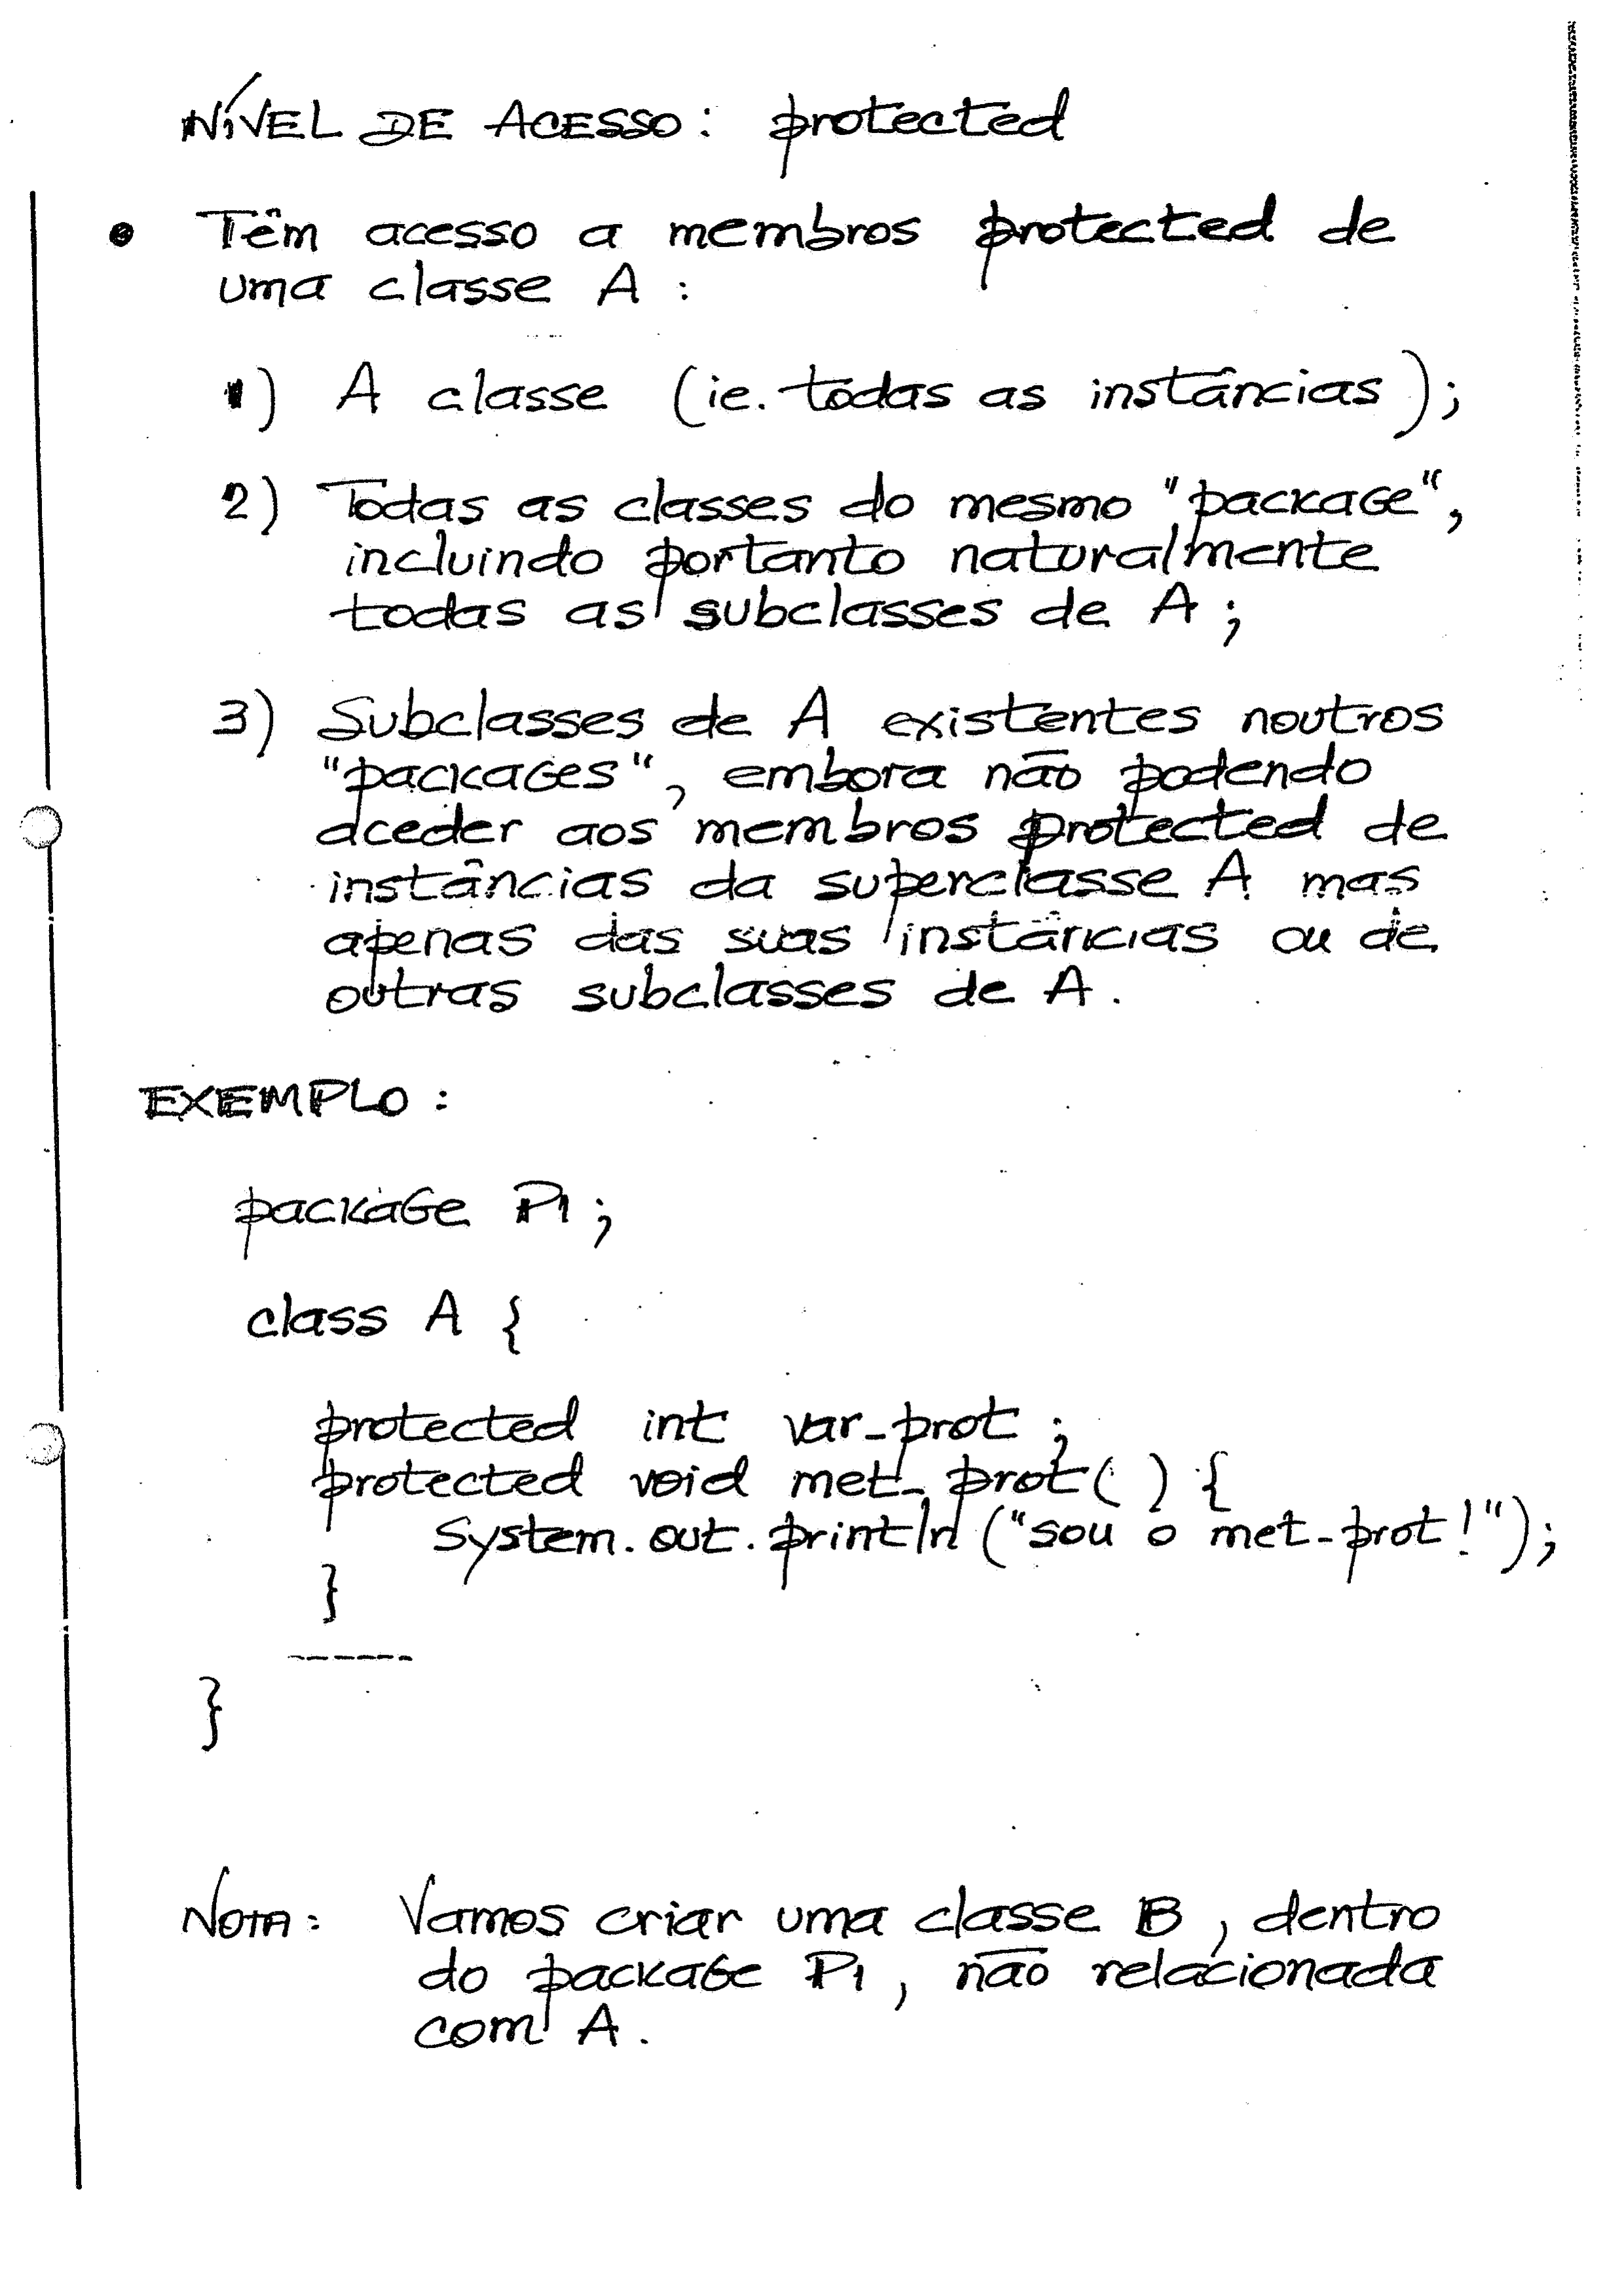 NÍVEL DE ACESSO: protected
• Têm acesso a membros protected de
uma classe A :
1) A classe (ie. todas as instâncias);
2) Todas as classes do mesmo "package",
incluindo portanto naturalmente
todas as subclasses de A ;
3) Subclasses de A existentes noutros
"packages", embora não podendo
aceder aos membros protected de
instâncias da superclasse A mas
apenas das suas instâncias ou de
outras subclasses de A .
EXEMPLO :
package P1 ;
class A {
protected int var_prot ;
protected void met_prot( ) {
System.out.println("sou o met_prot!");
}
------
}
NOTA: Vamos criar uma classe B , dentro
do package P1 , não relacionada
com A .